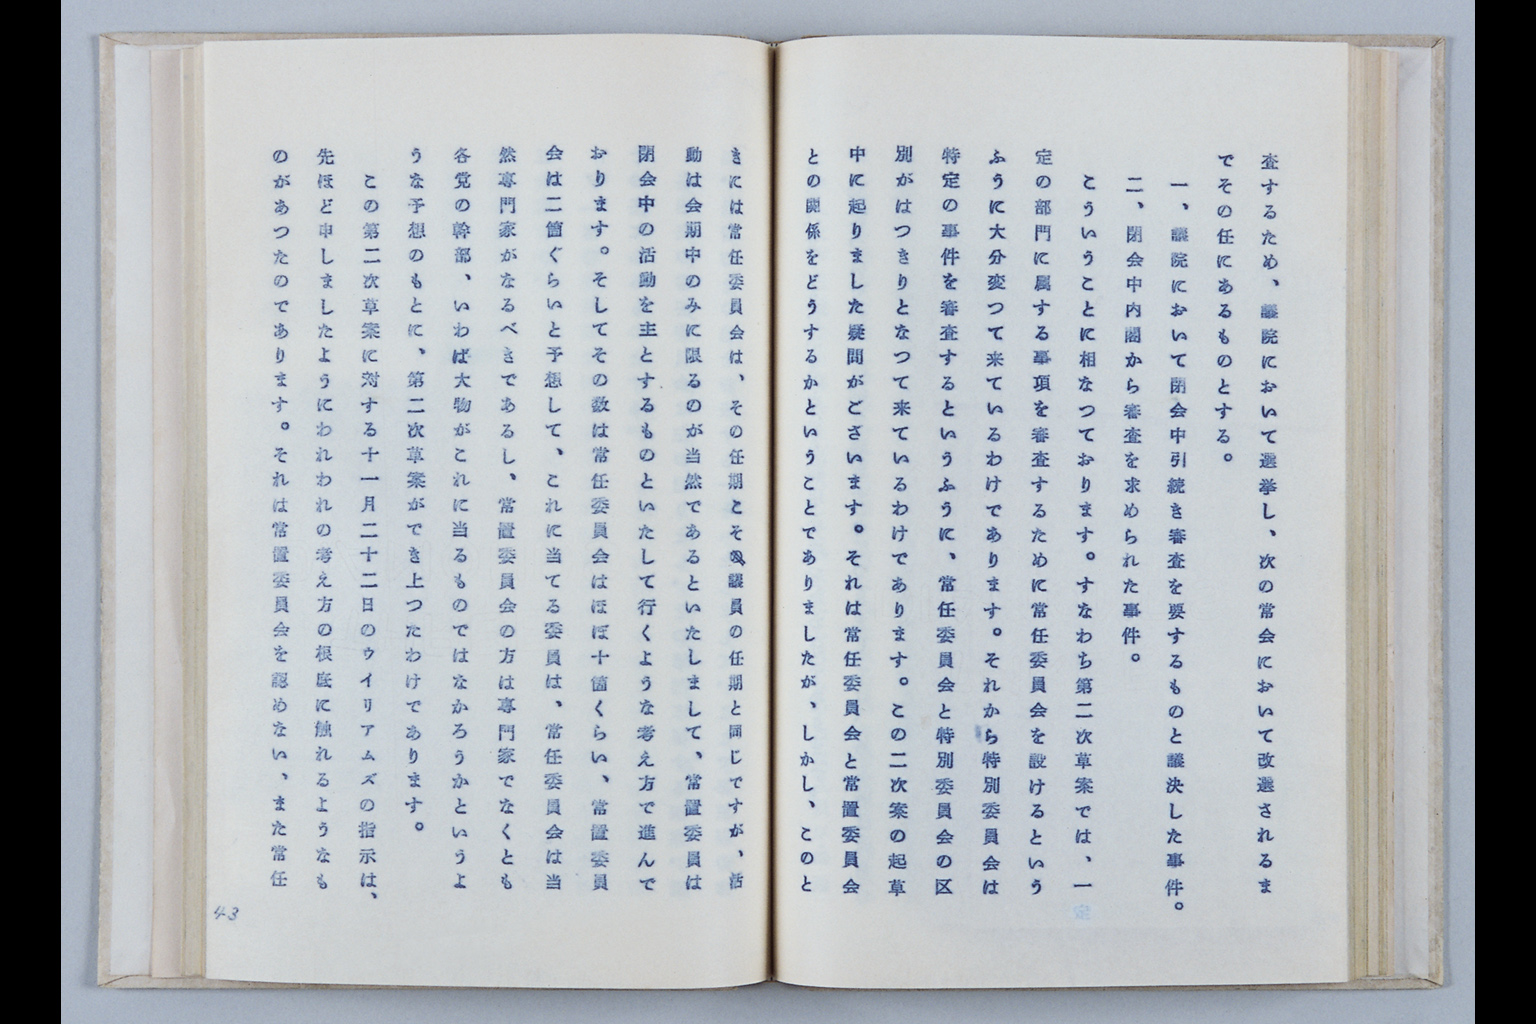 査するため、議院において選挙し、次の常会において改選されるま
でその任にあるものとする。
一、議院において閉会中引続き審査を要するものと議決した事件。
二、閉会中内閣から審査を求められた事件。
こういうことに相なつております。すなわち第二次草案では、一
定
定の部門に属する事項を審査するために常任委員会を設けるという
ふうに大分変つて来ているわけであります。それから特別委員会は
特定の事件を審査するというふうに、常任委員会と特別委員会の区
別がはつきりとなつて来ているわけであります。この二次案の起草
中に起りました疑問がございます。それは常任委員会と常置委員会
との関係をどうするかということでありましたが、しかし、このと
きには常任委員会は、その任期こそ議員の任期と同じですが、活
動は会期中のみに限るのが当然であるといたしまして、常置委員は
閉会中の活動を主とするものといたして行くような考え方で進んで
おります。そしてその数は常任委員会はほぼ十箇くらい、常置委員
会は二箇ぐらいと予想して、これに当てる委員は、常任委員会は当
然専門家がなるべきであるし、常置委員会の方は専門家でなくとも
各党の幹部、いわば大物がこれに当るものではなかろうかというよ
うな予想のもとに、第二次草案ができ上つたわけであります。
この第二次草案に対する十一月二十二日のウイリアムズの指示は、
先ほど申しましたようにわれわれの考え方の根底に触れるようなも
のがあつたのであります。それは常置委員会を認めない、また常任
43